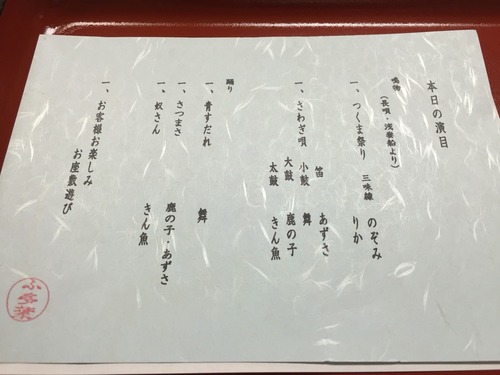 本日の演目
鳴物
(長唄・浅妻船より)
一、つくま祭り 三味線 のぞみ
りか
一、さわぎ唄 笛 あずさ
小鼓 舞
大鼓 鹿の子
太鼓 きん魚
踊り
一、青すだれ 舞
一、さつまさ 鹿の子・あずさ
一、奴さん きん魚
一、お客様お楽しみ
お座敷遊び